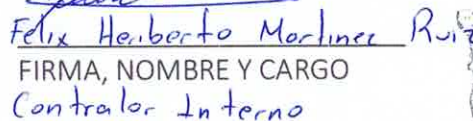 Felix Heriberto Martinez Ruiz
FIRMA, NOMBRE Y CARGO
Contralor Interno